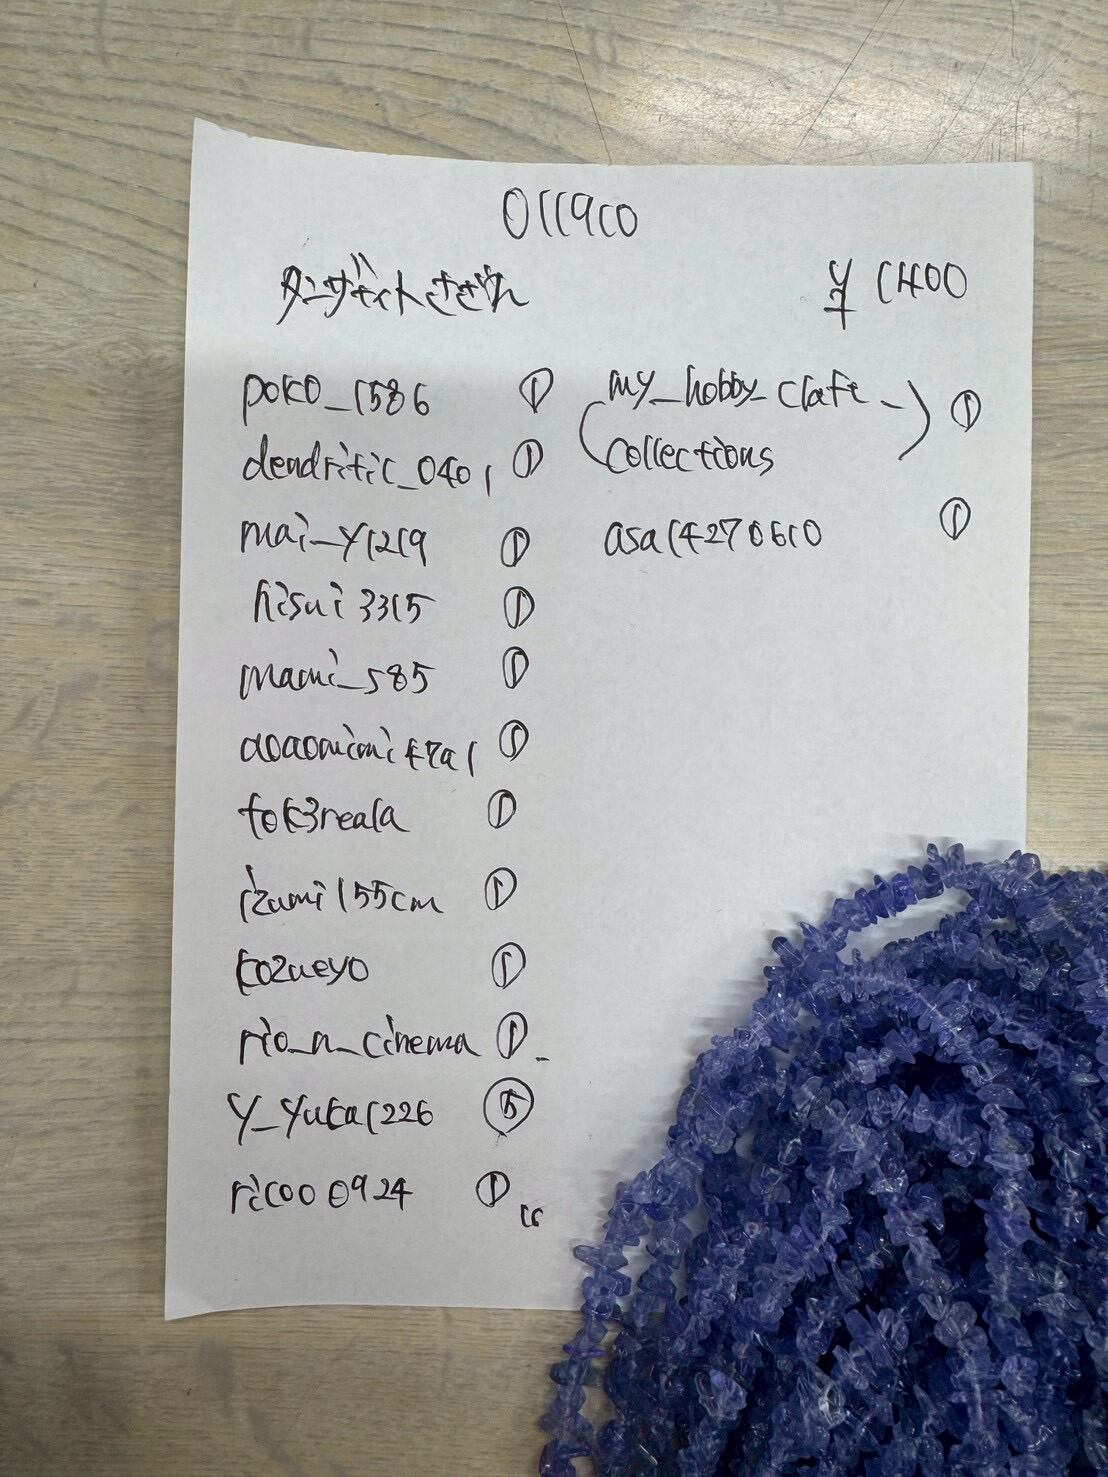 011910
タンザナイトさざれ
¥1400
poko_1586 ①
dendritic_0401 ①
mai_y1219 ①
hisui3315 ①
mami_585 ①
aoaomimi47a1 ①
tok3reala ①
izumi155cm ①
kozueyo ①
rio_n_cinema ①
y_yuka1226 ⑤
ricoo0924 ①
16
(my_hobby_craft_
collections) ①
asa14270610 ①